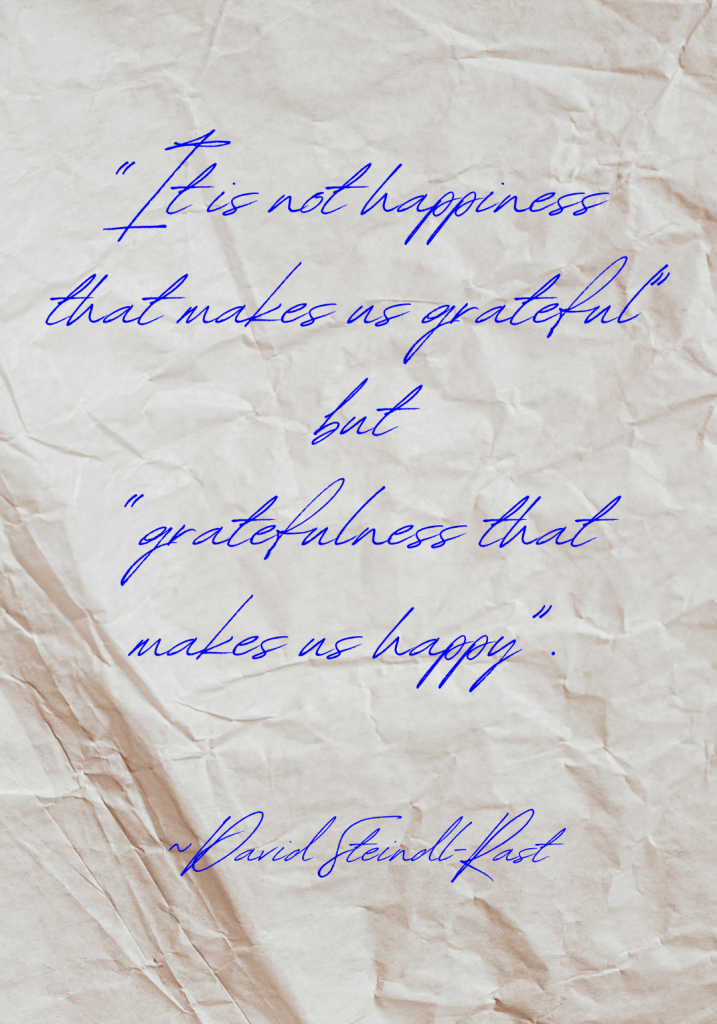 "It is not happiness
that makes us grateful"
but
"gratefulness that
makes us happy".
~David Steindl-Rast